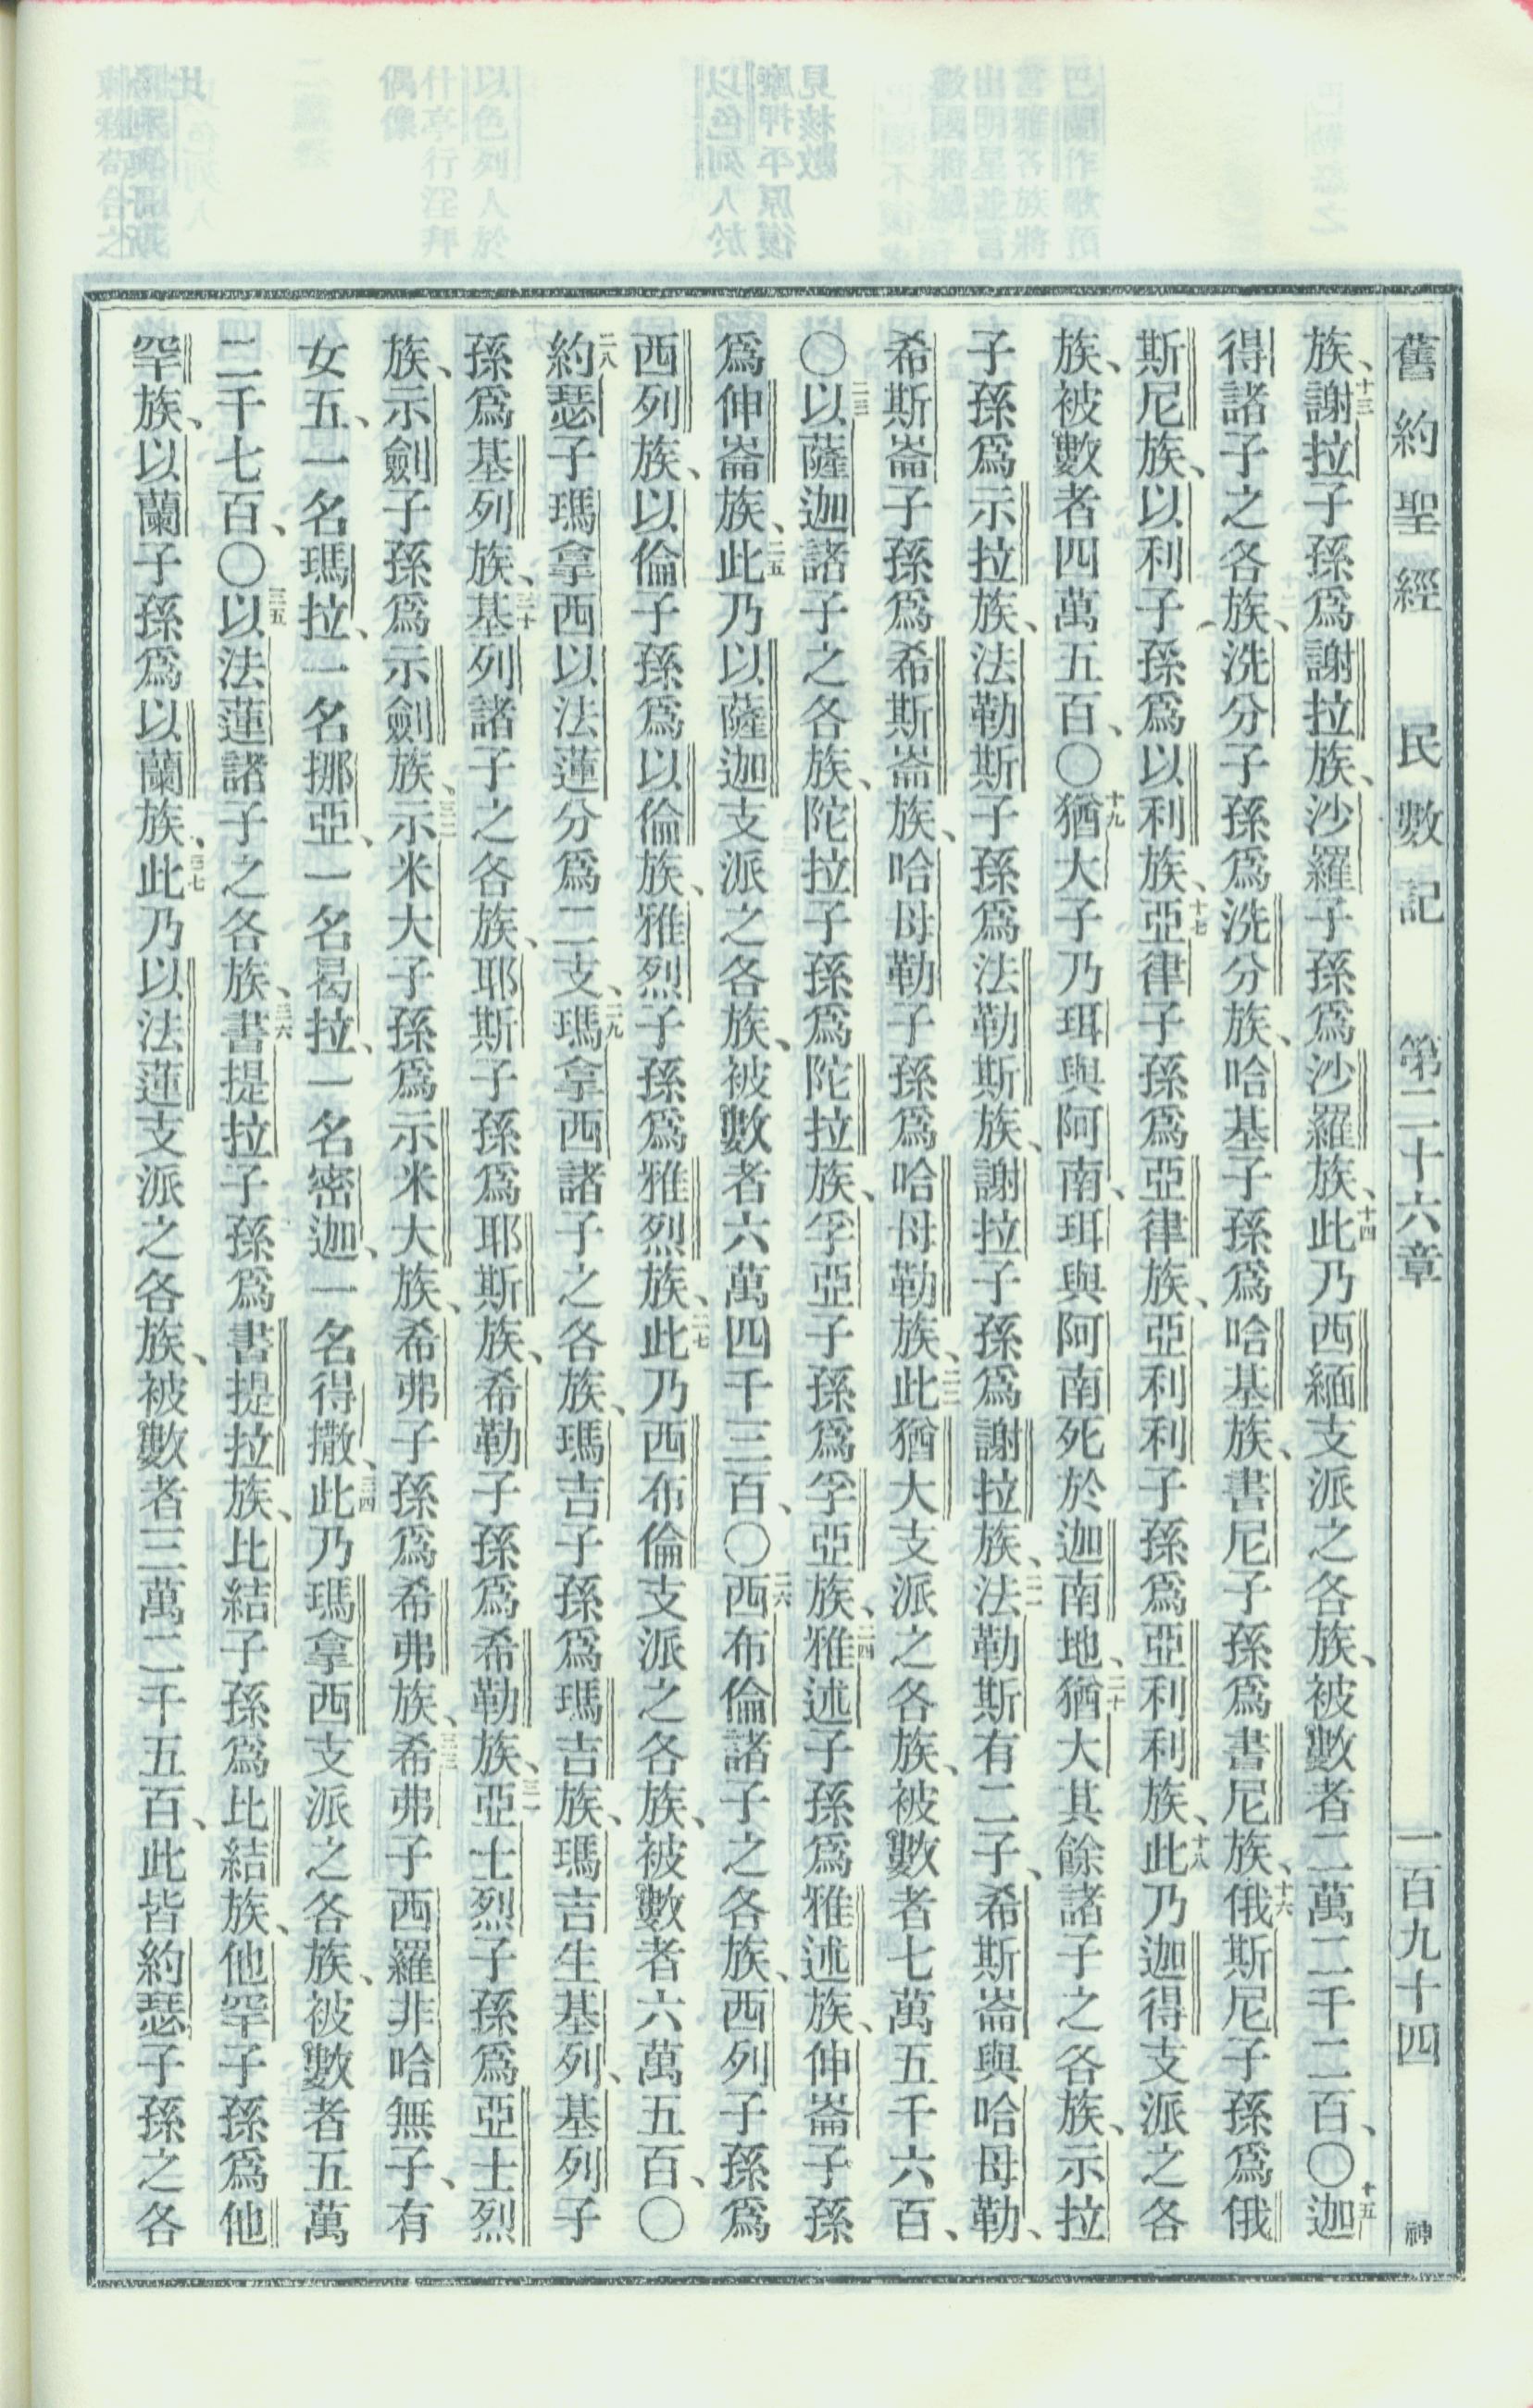 舊約聖經　民數記　第二十六章　一百九十四　神
族、十三謝拉子孫爲謝拉族、沙羅子孫爲沙羅族、十四此乃西緬支派之各族、被數者二萬二千二百、〇十五迦
得諸子之各族、洗分子孫爲洗分族、哈基子孫爲哈基族、書尼子孫爲書尼族、十六俄斯尼子孫爲俄
斯尼族、以利子孫爲以利族、十七亞律子孫爲亞律族、亞利利子孫爲亞利利族、十八此乃迦得支派之各
族、被數者四萬五百、〇十九猶大子乃珥與阿南、珥與阿南死於迦南地、二十猶大其餘諸子之各族、示拉
子孫爲示拉族、法勒斯子孫爲法勒斯族、謝拉子孫爲謝拉族、二一法勒斯有二子、希斯崙與哈母勒、
希斯崙子孫爲希斯崙族、哈母勒子孫爲哈母勒族、二二此猶大支派之各族、被數者七萬五千六百、
〇二三以薩迦諸子之各族、陀拉子孫爲陀拉族、孚亞子孫爲孚亞族、二四雅述子孫爲雅述族、伸崙子孫
爲伸崙族、二五此乃以薩迦支派之各族、被數者六萬四千三百、〇二六西布倫諸子之各族、西列子孫爲
西列族、以倫子孫爲以倫族、雅烈子孫爲雅烈族、二七此乃西布倫支派之各族、被數者六萬五百、〇
二八約瑟子瑪拿西以法蓮分爲二支、二九瑪拿西諸子之各族、瑪吉子孫爲瑪吉族、瑪吉生基列、基列子
孫爲基列族、三十基列諸子之各族、耶斯子孫爲耶斯族、希勒子孫爲希勒族、三一亞士烈子孫爲亞士烈
族、示劍子孫爲示劍族、三二示米大子孫爲示米大族、希弗子孫爲希弗族、三三希弗子西羅非哈無子、有
女五、一名瑪拉、一名挪亞、一名曷拉、一名密迦、一名得撒、三四此乃瑪拿西支派之各族、被數者五萬
二千七百、〇三五以法蓮諸子之各族、三六書提拉子孫爲書提拉族、比結子孫爲比結族、他罕子孫爲他
罕族、以蘭子孫爲以蘭族、三七此乃以法蓮支派之各族、被數者三萬二千五百、此皆約瑟子孫之各